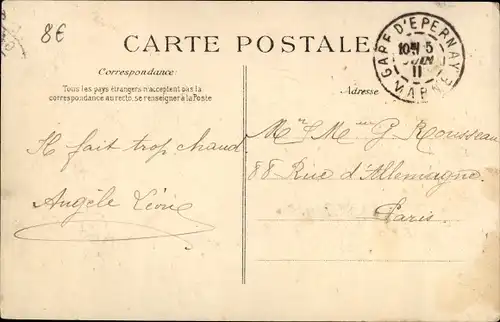 8€
CARTE POSTALE
GARE D'EPERNAY
10M 5
JUIN
11
MARNE
Correspondance
Tous les pays étrangers n'acceptent pas la
correspondance au recto, se renseigner à la Poste
Adresse
Il fait trop chaud
Angèle Léonie
Mr & Mme G. Rousseau
88 Rue d'Allemagne.
Paris.